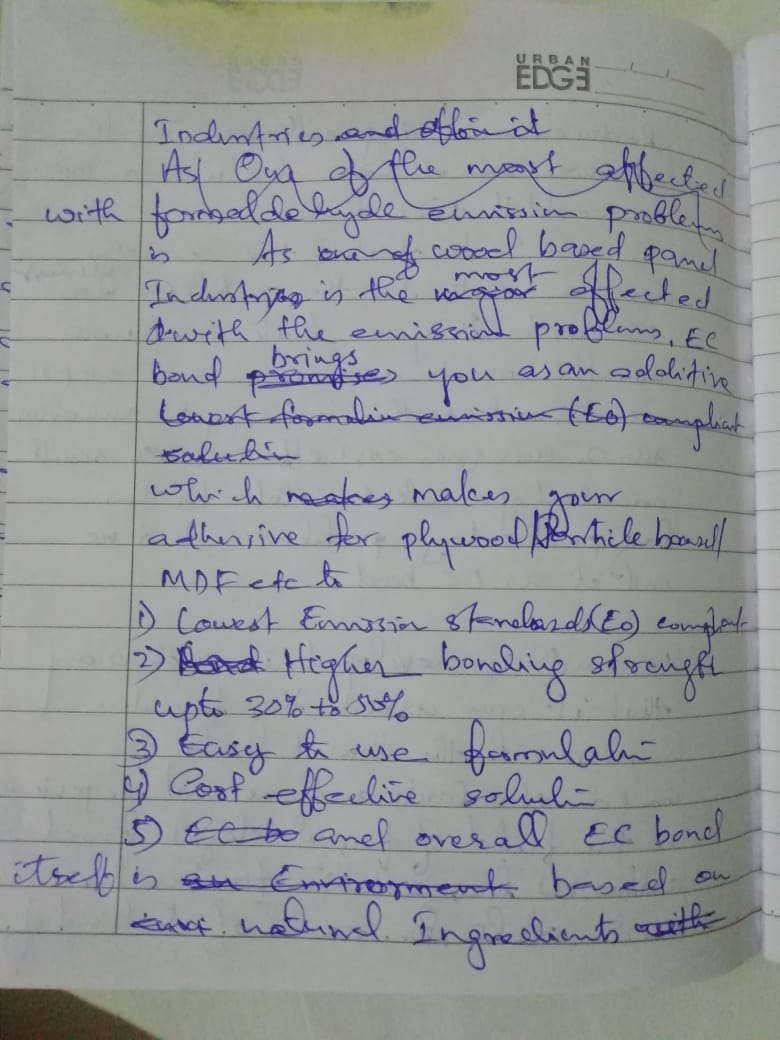 URBAN
EDGE
Industries and
As One of the most affected
with formaddehyde emission problem
is As one of wood based panel
most
Industries is the major affected
with the emission problems, EC
brings
bond promises you as an additive
Lowest formalin emission (E0) compliant
solutin
which makes makes your
adhesive for plywood/Particle board/
MDF etc to
1) Lowest Emission standards (E0) compliant
2) Bond Higher bonding strength
upto 30% to 50%
3) Easy to use formulatin
4) Cost effective solutin
5) EC bo and overall EC bond
itself is an Environment based on
natural Ingredients with